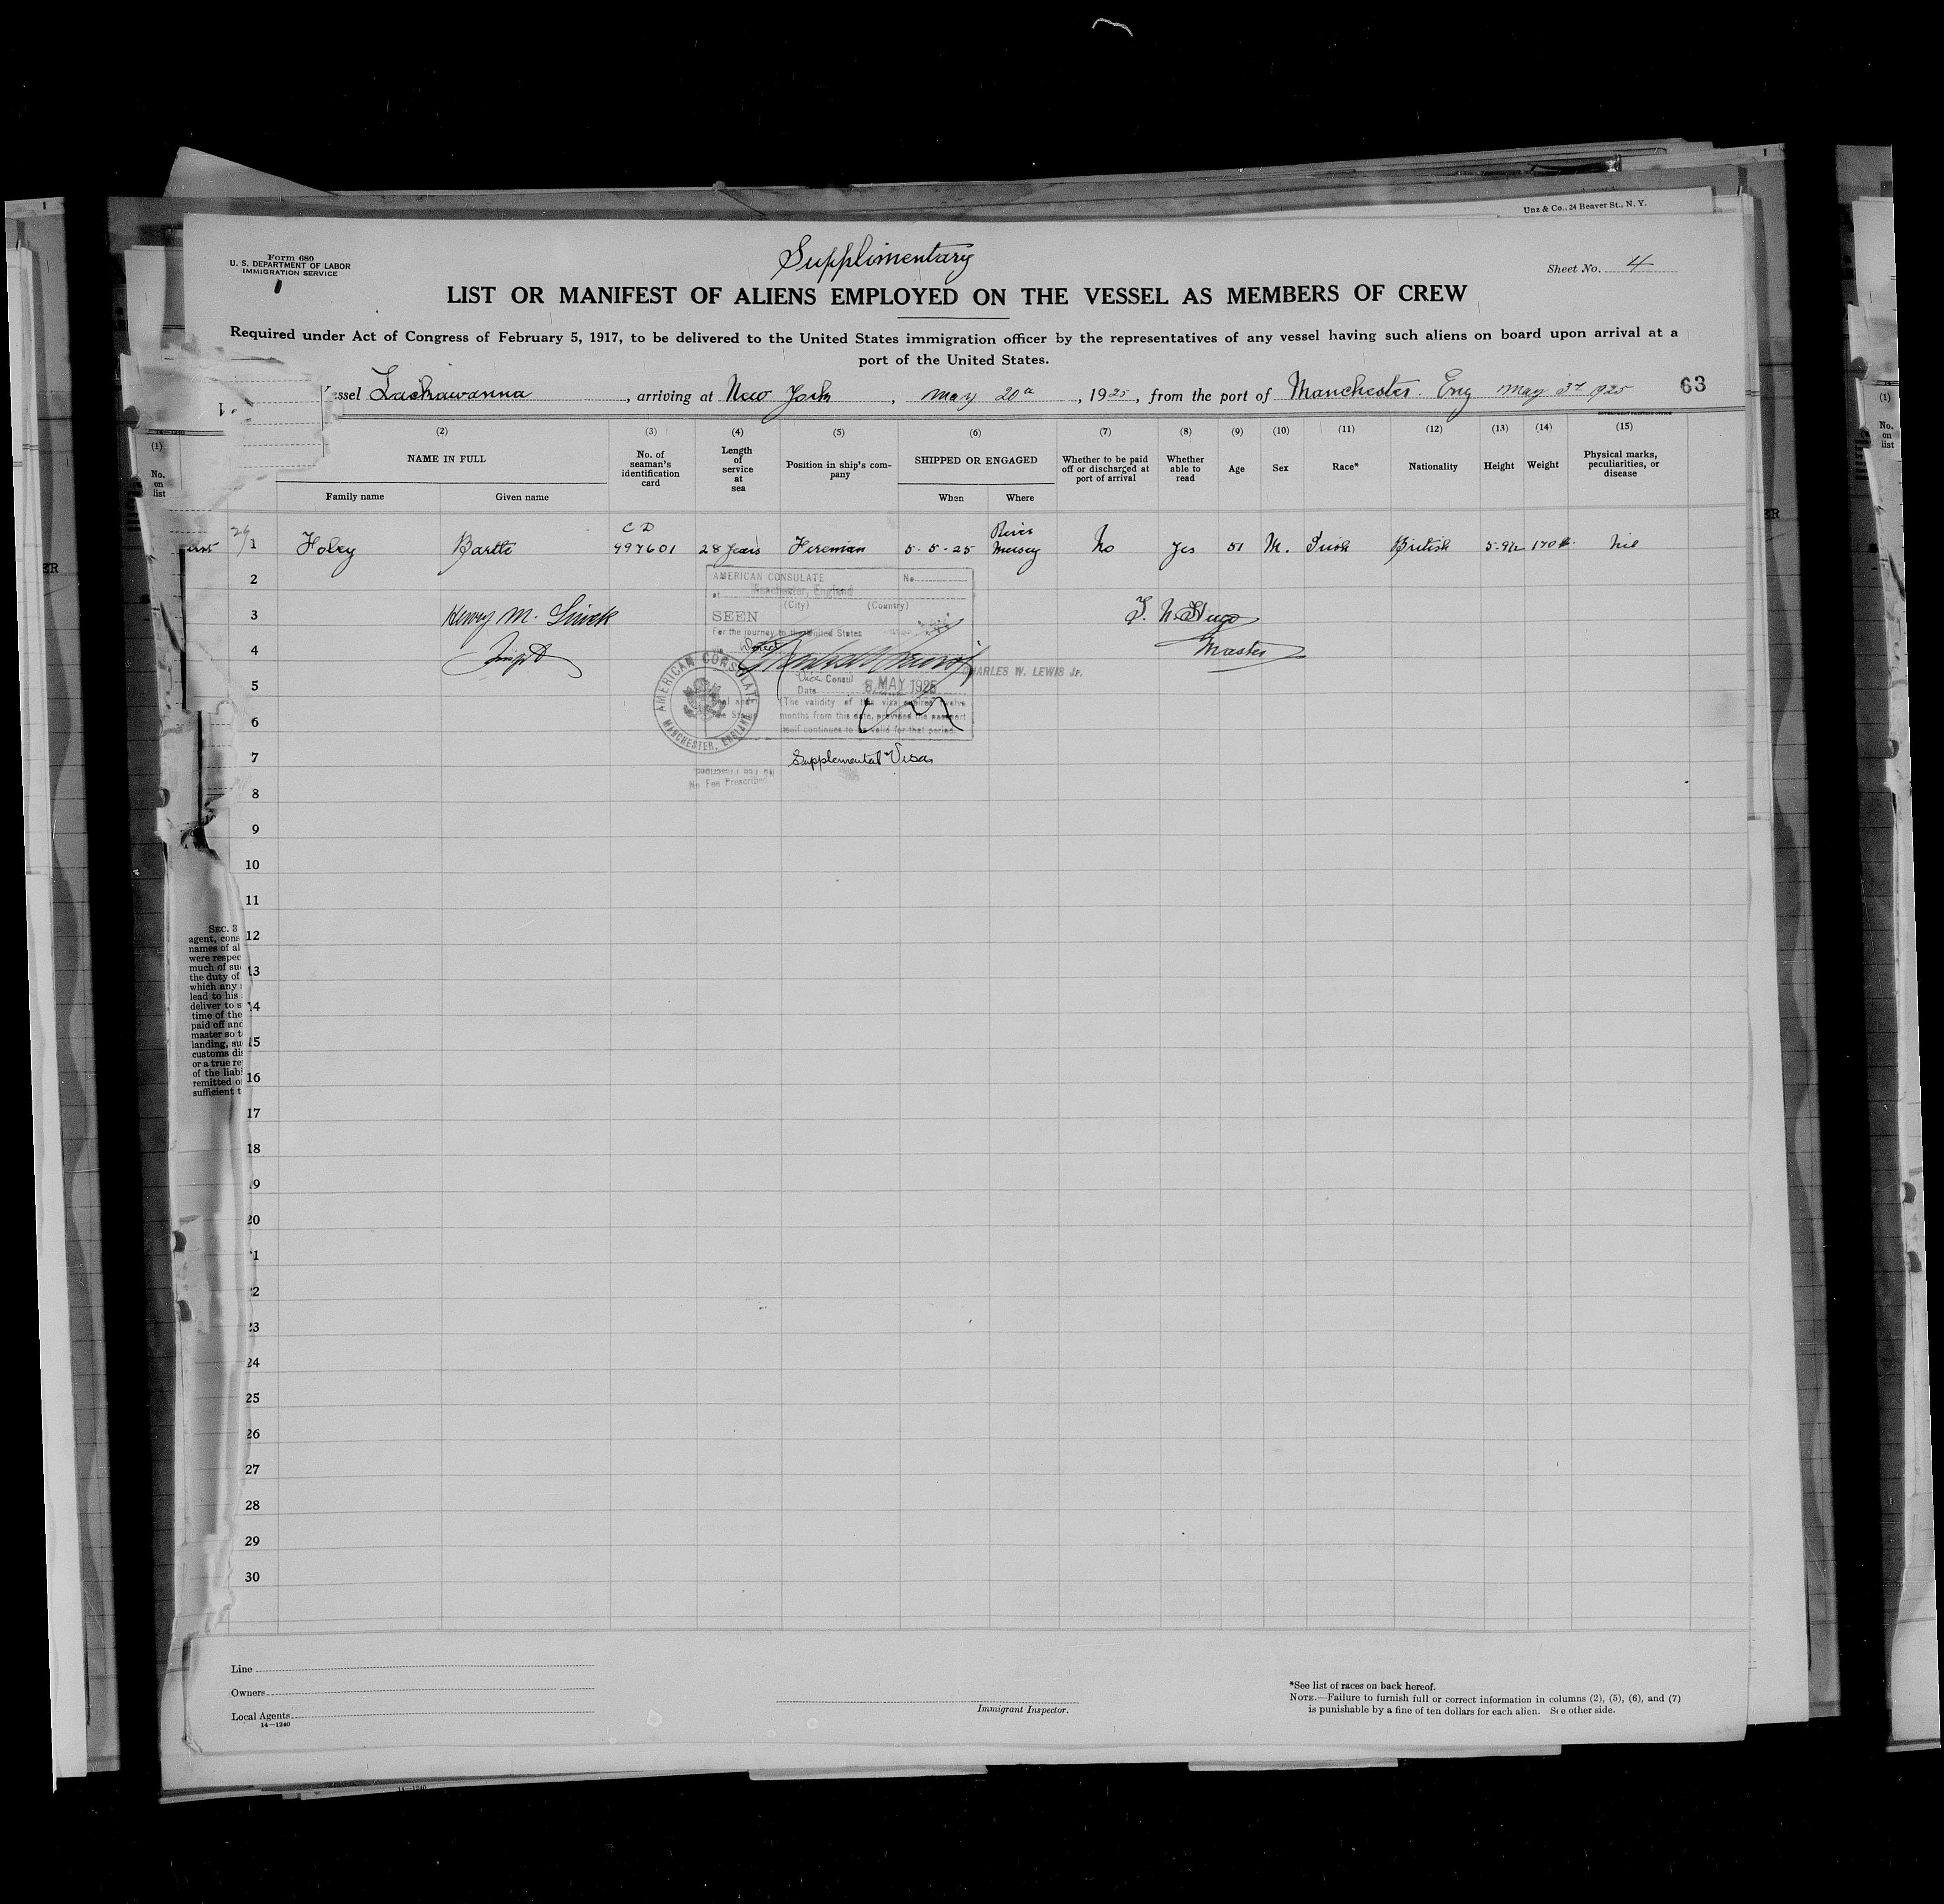 Unz & Co., 24 Beaver St., N. Y.
Form 680
U. S. DEPARTMENT OF LABOR
IMMIGRATION SERVICE
Supplimentary
Sheet No. 4
LIST OR MANIFEST OF ALIENS EMPLOYED ON THE VESSEL AS MEMBERS OF CREW
Required under Act of Congress of February 5, 1917, to be delivered to the United States immigration officer by the representatives of any vessel having such aliens on board upon arrival at a
port of the United States.
essel Lackawanna, arriving at New York, May 20th, 1925, from the port of Manchester. Eng May 1925 63
(1) (2) (3) (4) (5) (6) (7) (8) (9) (10) (11) (12) (13) (14) (15)
No. on list
NAME IN FULL
Family name Given name
No. of seaman's identification card
Length of service at sea
Position in ship's company
SHIPPED OR ENGAGED
When Where
Whether to be paid off or discharged at port of arrival
Whether able to read
Age
Sex
Race*
Nationality
Height
Weight
Physical marks, peculiarities, or disease
1 Foley Bartle C D 997601 28 Years Fireman 5-5-25 River Mersey No Yes 51 M. Irish British 170 Nil
2
3 Henry M.
4 Master
5
6
7
8
9
10
11
12
13
14
15
16
17
18
19
20
21
22
23
24
25
26
27
28
29
30
AMERICAN CONSULATE No.
at Manchester, England
(City) (Country)
SEEN
For the journey to the United States
CHARLES W. LEWIS Jr.
Vice Consul
Date 8 MAY 1925
(The validity of this visa expires twelve
months from this date, provided the passport
itself continues to be valid for that period.
AMERICAN CONSULATE
MANCHESTER, ENGLAND
Supplemental Visa
No Fee Prescribed
No Fee Prescribed
SEC. 3
agent, cons
names of al
were respec
much of su
the duty of
which any
lead to his
deliver to s
time of the
paid off and
master so t
landing, su
customs di
or a true re
of the liab
remitted o
sufficient t
Line
Owners
Local Agents
14—1240
Immigrant Inspector.
*See list of races on back hereof.
NOTE.—Failure to furnish full or correct information in columns (2), (5), (6), and (7)
is punishable by a fine of ten dollars for each alien. See other side.